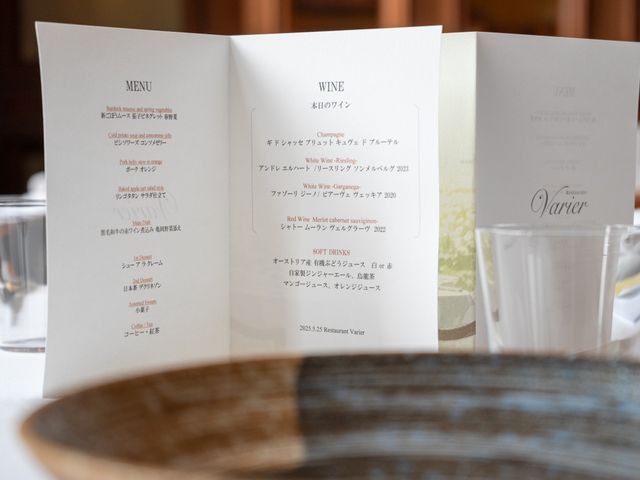 MENU
Burdock mousse and spring vegetables
新ごぼうムース 茄子ビネグレット 春野菜
Cold potato soup and consomme jelly
ビシソワーズ コンソメゼリー
Pork belly stew in orange
ポーク オレンジ
Baked apple tart salad style
リンゴタタン サラダ仕立て
Main Dish
黒毛和牛の赤ワイン煮込み 亀岡野菜添え
1st Dessert
シュー ア ラ クレーム
2nd Dessert
日本茶 デクリネゾン
Assorted Sweets
小菓子
Coffee / Tea
コーヒー・紅茶
WINE
本日のワイン
Champagne
ギ ド シャッセ ブリュット キュヴェ ド ブルーテル
White Wine -Riesling-
アンドレ エルハート /リースリング ソンメルベルグ 2023
White Wine -Garganega-
ファゾーリ ジーノ/ ピアーヴェ ヴェッキア 2020
Red Wine Merlot cabernet sauvignion-
シャトー ムーラン ヴェルグラーヴ 2022
SOFT DRINKS
オーストリア産 有機ぶどうジュース 白 or 赤
自家製ジンジャーエール、烏龍茶
マンゴージュース、オレンジジュース
2025.5.25 Restaurant Varier
Restaurant
Varier